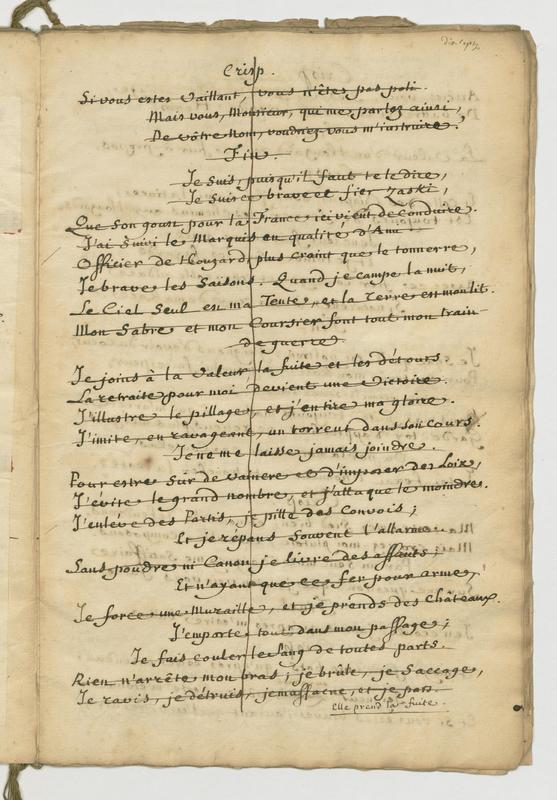 dix-sept
Crisp.
Si vous estes vaillant, vous n'êtes pas poli.
Mais vous, Monsieur, qui me parlez ainsi,
De vôtre nom, voudriez-vous m'instruire ?
Fin.
Je suis, puisqu'il faut te le dire,
Je suis ce brave et fier Zaski,
Que son goust pour la France ici vient de conduire.
J'ai suivi le Marquis en qualité d'Ami
Officier de Houzards, plus craint que le tonnerre,
Je brave les Saisons. Quand je campe la nuit,
Le Ciel seul est ma Tente, et la Terre est mon lit.
Mon Sabre et mon Coursier font tout mon train
de guerre
Je joins à la valeur la fuite et les détours.
La retraite pour moi devient une victoire.
J'illustre le pillage, et j'en tire ma gloire.
J'imite, en ravageant, un torrent dans son cours.
Je ne me laisse jamais joindre.
Pour estre Sûr de vaincre et d'imposer des Loix,
J'évite le grand nombre, et j'attaque le moindre.
J'enlève des Partis, je pille des Convois ;
Et je répans souvent l'allarme.
Sans poudre ni Canon je livre des assauts ;
Et n'ayant que ce fer pour arme,
Je force une Muraille, et je prends des Châteaux.
J'emporte tout dans mon passage ;
Je fais couler le Sang de toutes parts.
Rien n'arrête mon bras ; je brûle, je Saccage,
Je ravis, je détruis, je massacre, et je pars.
Elle prend la fuite.